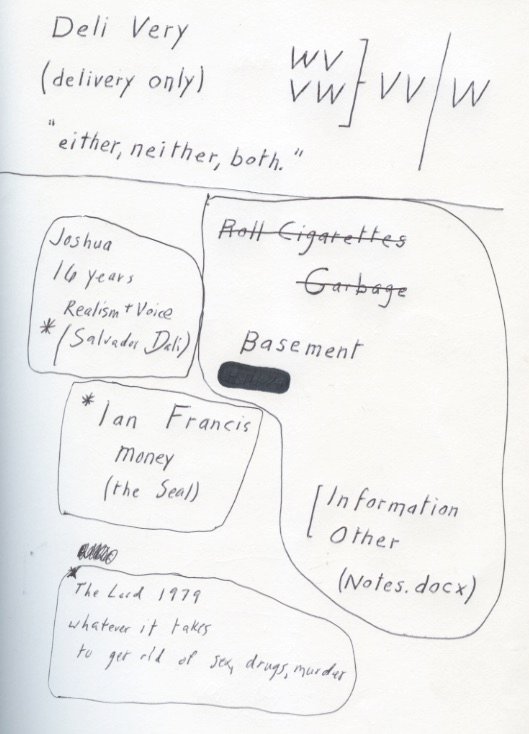 Deli Very
(delivery only)
"either, neither, both."
WV
VW ] VV / W
Joshua
16 years
Realism + Voice
* (Salvador Dali)
* Ian Francis
money
(the Seal)
* The Lord 1979
whatever it takes
to get rid of sex, drugs, murder
Roll Cigarettes
Garbage
Basement
[ Information
Other
(Notes.docx)